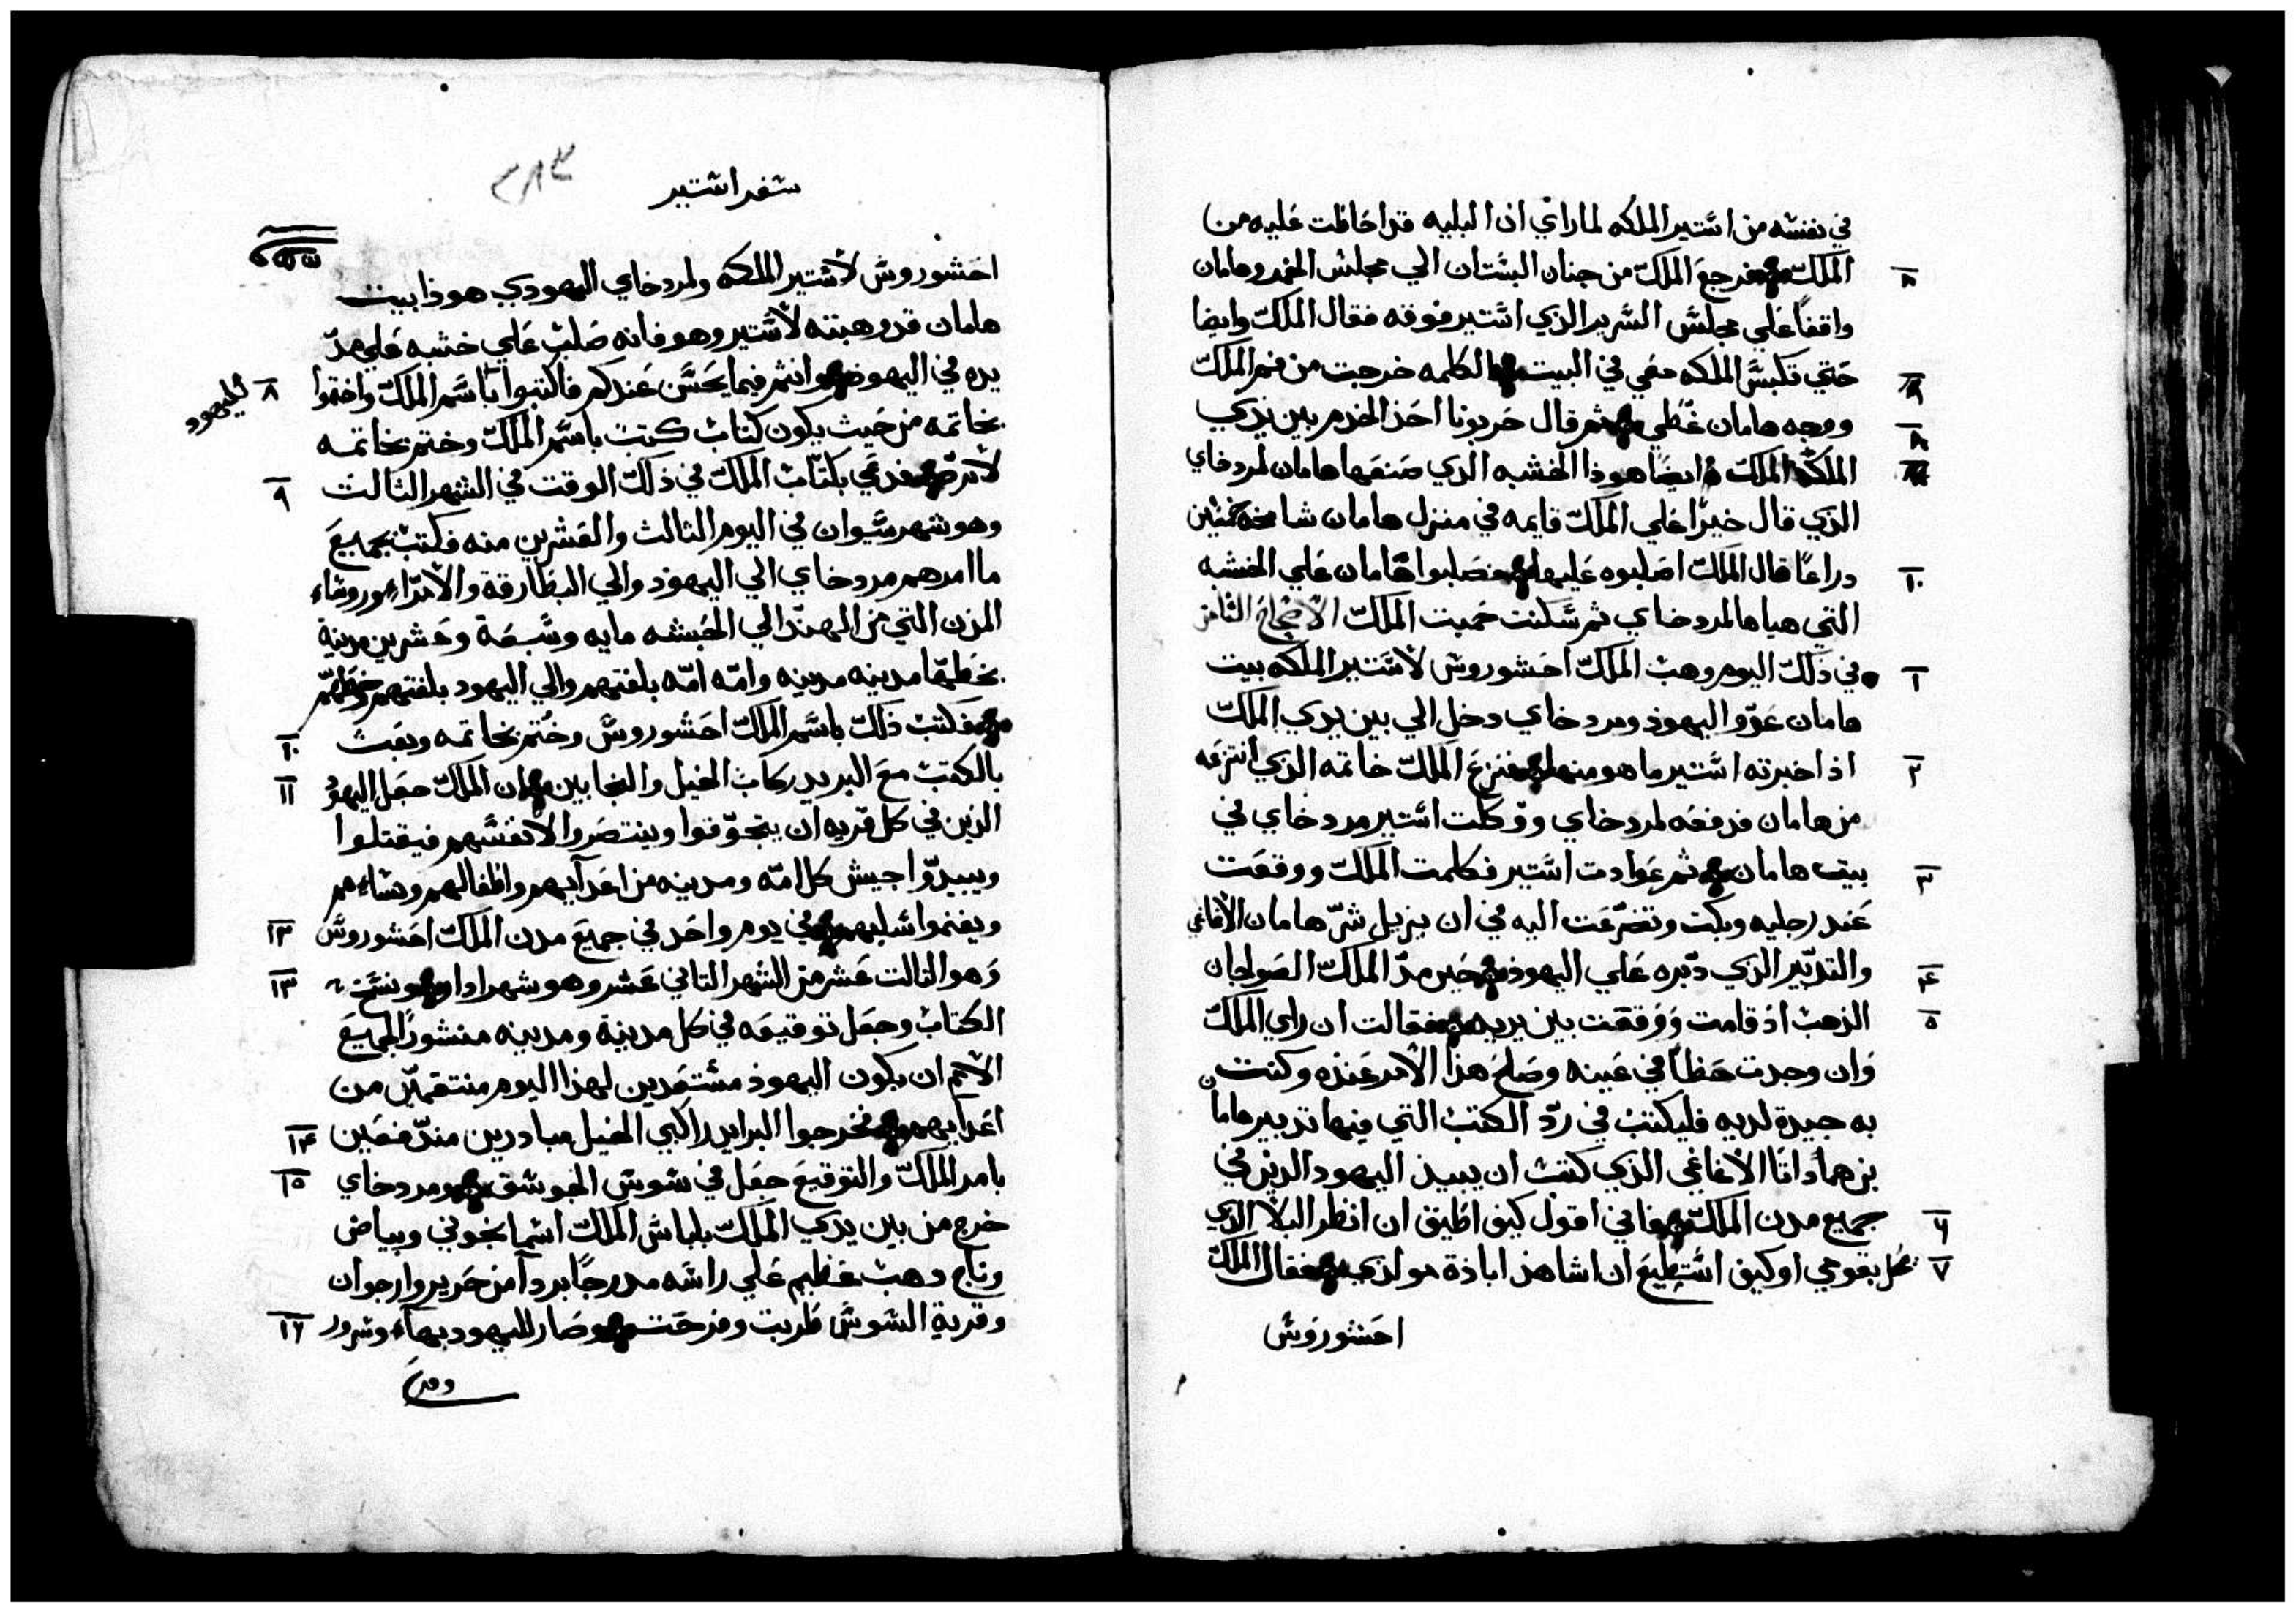 في نفسه من استير الملكه لما راي ان البليه قد احاطت عليه من
٨ الملك فرجع الملك من جنان البستان الي مجلس الخمر وهامان
واقفاً علي مجلس السرير الذي استير فوقه فقال الملك وايضا
حتي تكبس الملكه معي في البيت الكلمه خرجت من فم الملك
ووجه هامان غُطي ثم قال حربونا احد الخدم بين يدي
الملك وايضاً هوذا الخشبه الذي صنعها هامان لمردخاي
الذي قال خيراً علي الملك قايمه في منزل هامان شامخه خمسين
١٠ دراعاً قال الملك اصلبوه عليها فصلبوا هامان علي الخشبه
التي هياها لمردخاي ثم سكنت حميت الملك الاصحاح الثامن
١ في ذلك اليوم وهب الملك احشوروش لاستير الملكه بيت
هامان عدو اليهود ومردخاي دخل الي بين يدي الملك
٢ اذ اخبرته استير ما هو منها فنزع الملك خاتمه الذي انتزعه
من هامان فدفعه لمردخاي ووكلت استير مردخاي في
٣ بيت هامان ثم عوادت استير فكلمت الملك ووقعت
عند رجليه وبكت وتضرعت اليه في ان يزيل شرّ هامان الاغاغي
٤ والتدبير الذي دبره علي اليهود حين مدّ الملك الصولجان
٥ الذهب اذ قامت ووقفت بين يديه فقالت ان راي الملك
وان وجدت حظاً في عينه وصلح هذا الامر عنده وكنت
به جيدة لديه فليكتب في ردّ الكتب التي فيها تدبير هامان
بن همداتا الاغاغي الذي كتب ان يبيد اليهود الذين في
٦ جميع مدن الملك فاني اقول كيف اطيق ان انظر البلا الذي
٧ يحل بقومي او كيف استطيع ان اشاهد اباذة مولدي فقال الملك
احشوروش
سفر استير
٣٨٣
احشوروش لاستير الملكه ولمردخاي اليهودي هوذا بيت
هامان قد وهبته لاستير وهو فانه صلب علي خشبه علي مدّ
٨ يده في اليهود وانتم فيما يحسن عندكم فاكتبوا باسم الملك واختموا
لليهود
بخاتمه من حيث يكون كتاب كتب باسم الملك وختم بخاتمه
٩ لا يردّ فدعي بكتّاب الملك في ذلك الوقت في الشهر الثالث
وهو شهر سيوان في اليوم الثالث والعشرين منه فكتب بجميع
ما امرهم مردخاي الي اليهود والي البطارقة والامراء وروساء
المدن التي من الهند الي الحبشه مايه وسبعة وعشرين مدينة
بخطها مدينه مدينه وامّه امّه بلغتهم والي اليهود بلغتهم وخطهم
١٠ فكتب ذلك باسم الملك احشوروش وختم بخاتمه وبعث
١١ بالكتب مع البريد ركاب الخيل والنجابين ان الملك جعل اليهود
الذين في كل قريه ان يتجوّقوا وينتصروا لانفسهم فيقتلوا
ويبيدّوا جيش كل امّه ومدينه من اعدآيهم واطفالهم ونساءهم
١٢ ويغنموا سلبهم في يوم واحد في جميع مدن الملك احشوروش
١٣ وهو الثالت عشر من الشهر الثاني عشر وهو شهر ادار ونسخت
الكتاب وجعل توقيعه في كل مدينة ومدينه منشوراً لجميع
الامم ان يكون اليهود مستعدين لهذا اليوم منتقمين من
١٤ اعدايهم فخرجوا البرايد راكبي الخيل مبادرين مندّفعين
١٥ بامر الملك والتوقيع جعل في شوش الجوشق ومردخاي
خرج من بين يدي الملك بلباس الملك اسمانجوني وبياض
وتاج دهب عظيم علي راسه مدرجاً بردآ من حرير وارجوان
١٦ وقرية الشوش طربت وفرحت وصار لليهود بهآء وسرور